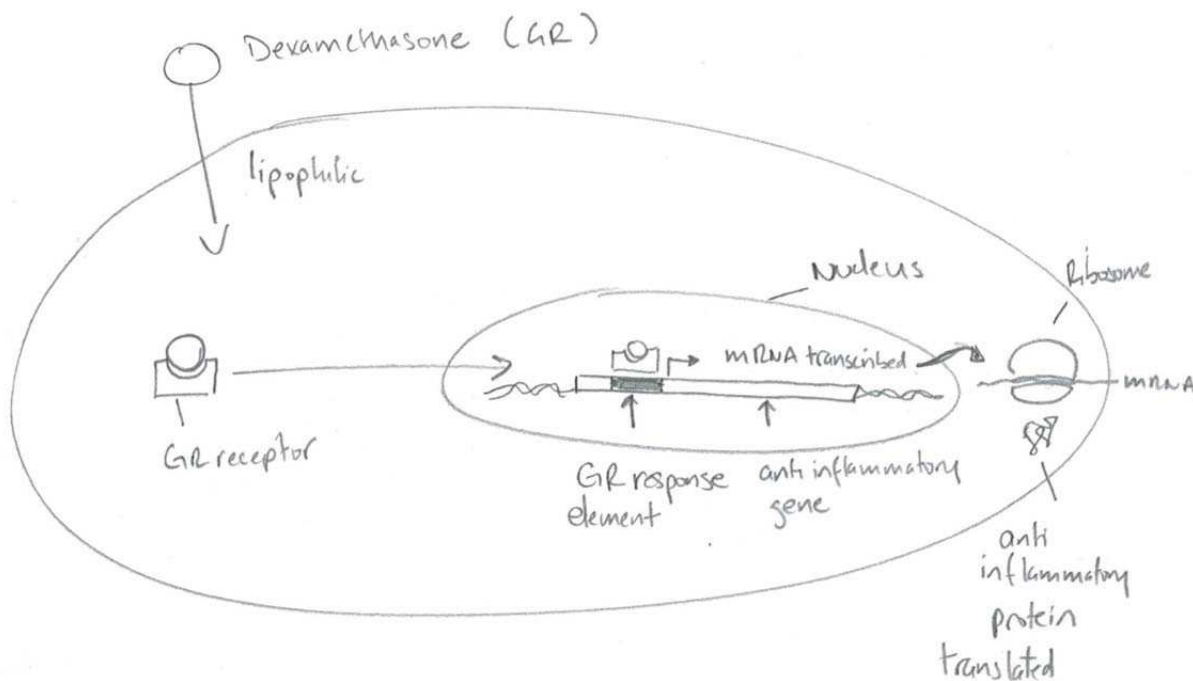 Dexamethasone (GR)
lipophilic
Nucleus
Ribosome
mRNA transcribed
mRNA
GR receptor
GR response
element
anti inflammatory
gene
anti
inflammatory
protein
translated